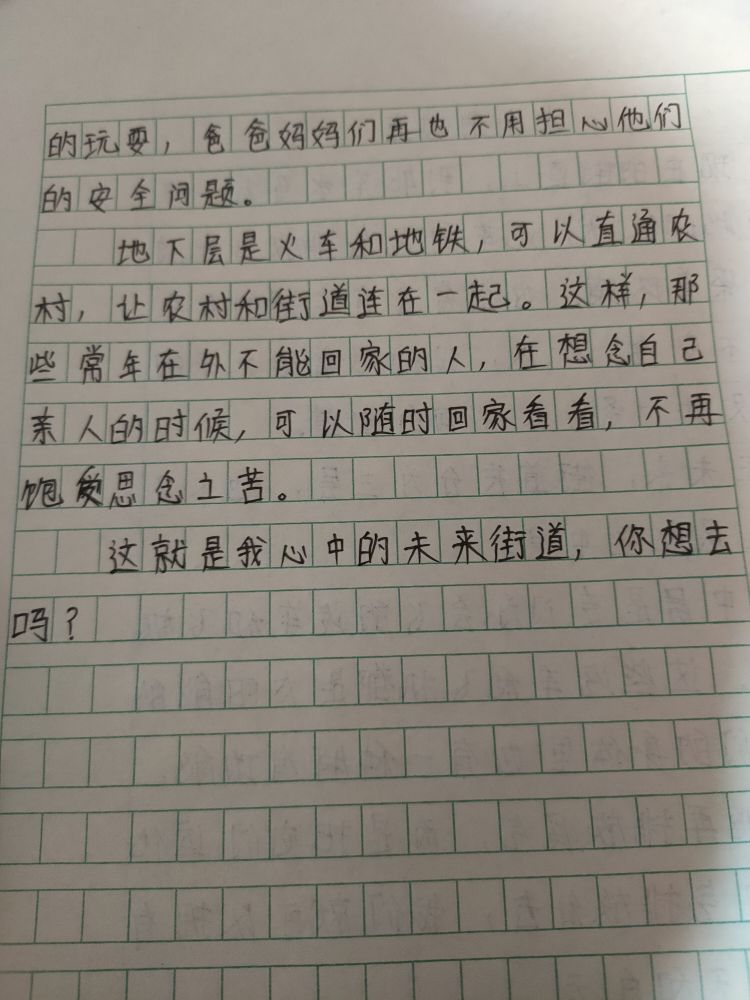 的玩耍，爸爸妈妈们再也不用担心他们
的安全问题。
地下层是火车和地铁，可以直通农
村，让农村和街道连在一起。这样，那
些常年在外不能回家的人，在想念自己
亲人的时候，可以随时回家看看，不再
饱受思念之苦。
这就是我心中的未来街道，你想去
吗？